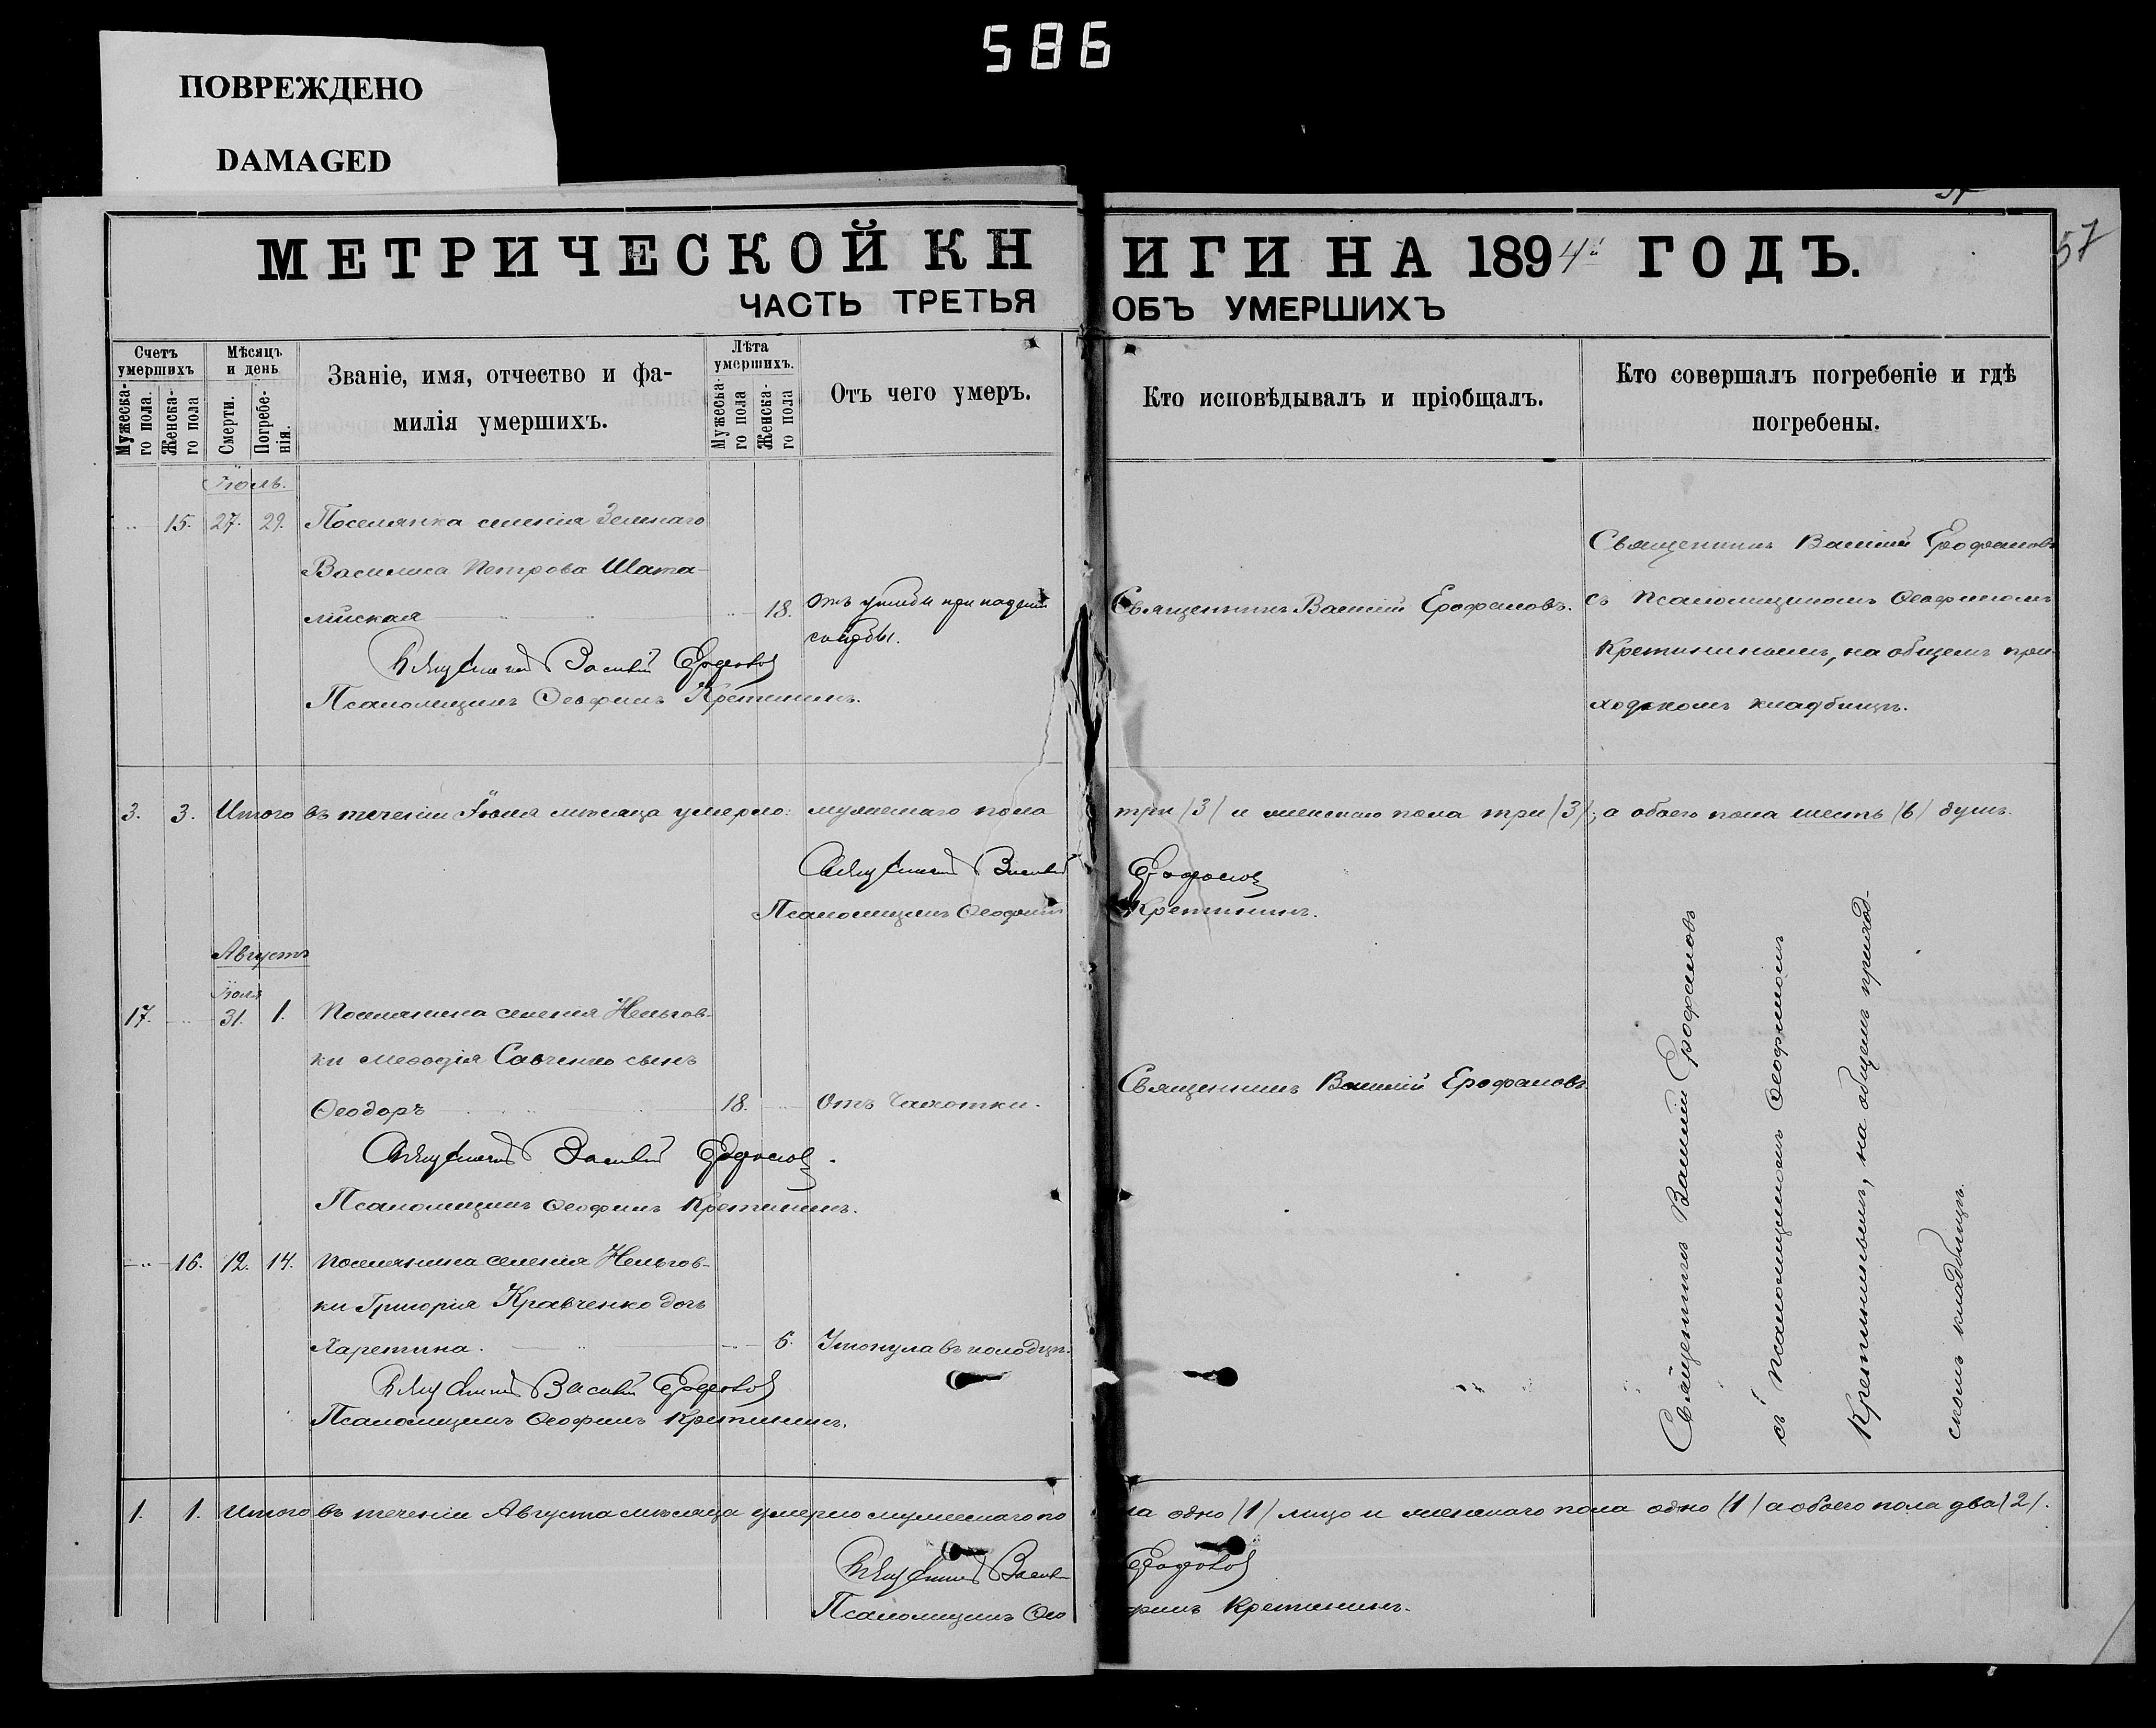 586
ПОВРЕЖДЕНО
DAMAGED
57
МЕТРИЧЕСКОЙ КНИГИ НА 1894й ГОДЪ.
ЧАСТЬ ТРЕТЬЯ ОБЪ УМЕРШИХЪ
Счетъ умершихъ
Мужескаго пола.
Женскаго пола
Мѣсяцъ и день
Смерти.
Погребенія.
Званіе, имя, отчество и фамилія умершихъ.
Лѣта умершихъ.
Мужескаго пола
Женскаго пола
Отъ чего умеръ.
Кто исповѣдывалъ и пріобщалъ.
Кто совершалъ погребеніе и гдѣ погребены.
Іюль.
15. 27. 29. Поселянка селенія Зеленаго
Василиса Петрова Шата-
лийская 18. Отъ при
Священникъ Василій Ерофаловъ.
Священникъ Василій Ерофаловъ
съ Псаломщикомъ Ѳеофиломъ
Кретининымъ, на общемъ при-
ходскомъ кладбищѣ.
Священникъ Василій
Псаломщикъ Ѳеофилъ Кретининъ.
3. 3. Итого въ теченіи Іюля мѣсяца умерло: мужескаго пола три (3) и женскаго пола три (3), а обоего пола шесть (6) душъ.
Священникъ Василій
Псаломщикъ Ѳеофилъ Кретининъ.
Августъ
Іюля
17. 31. 1. Поселянина селенія Нельгов-
ки Меѳодія Савченко сынъ
Ѳеодоръ 18. Отъ Чахотки.
Священникъ Василій Ерофаловъ.
Священникъ Василій
Псаломщикъ Ѳеофилъ Кретининъ.
16. 12. 14. Поселянина селенія Нельгов-
ки Григорія Кравченко дочь
Харетина. 6. Утонула въ колодцѣ.
Священникъ Василій
Псаломщикъ Ѳеофилъ Кретининъ.
Священникъ Василій Ерофаловъ
съ Псаломщикомъ Ѳеофиломъ
Кретининымъ, на общемъ приход-
скомъ кладбищѣ.
1. 1. Итого въ теченіи Августа мѣсяца умерло мужескаго пола одно (1) лицо и женскаго пола одно (1) а обоего пола два (2).
Священникъ Василій
Псаломщикъ Ѳеофилъ Кретининъ.